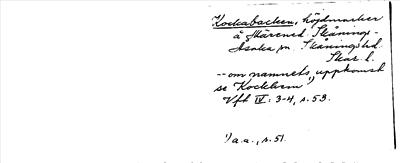 Kockabacken, höjdmarker
å Skärened Skånings-
Åsaka, sn. Skånings hd.
Skar. l.
-- om namnets uppkomst
se Kockhem 1)
Vft IV: 3-4, s. 53.
1) a.a., s. 51.